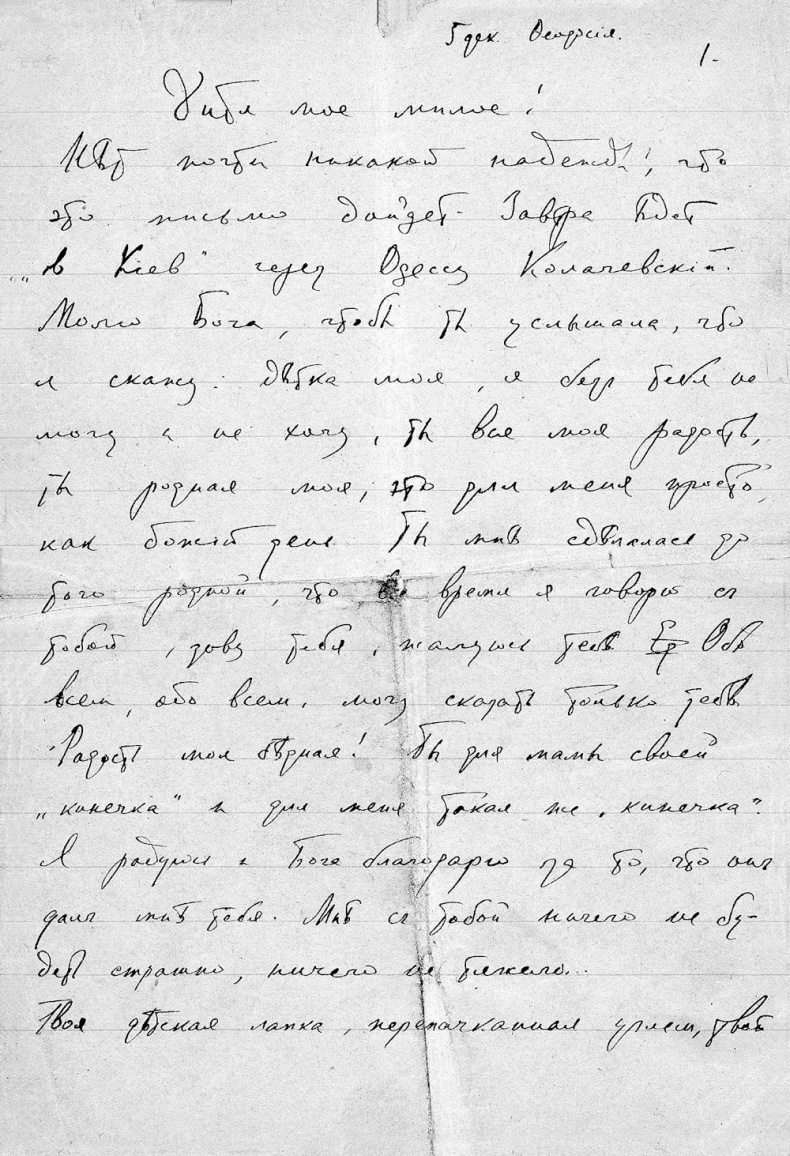 5 дек. Феодосiя.
1.
Дитя мое милое!
Нѣт почти никакой надежды, что
это письмо дойдет. Завтра ѣдет
„в Кiев" через Одессу Колачевскiй.
Молю Бога, чтобы ты услышала, что
я скажу: дѣтка моя, я без тебя не
могу и не хочу, ты вся моя радость,
ты родная моя, это для меня просто,
как божiй день. Ты мнѣ сдѣлалась до
того родной, что время я говорю съ
тобой, зову тебя, жалуюсь тебѣ Обо
всем, обо всем, могу сказать только тебѣ
Радость моя бѣдная! Ты для мамы своей
„кинечка" и для меня такая же „кинечка".
Я радуюсь и Бога благодарю за то, что онъ
далъ мнѣ тебя. Мнѣ съ тобой ничего не бу-
дет страшно, ничего не тяжело...
Твоя дѣтская лапка, перепачканная углем, твой